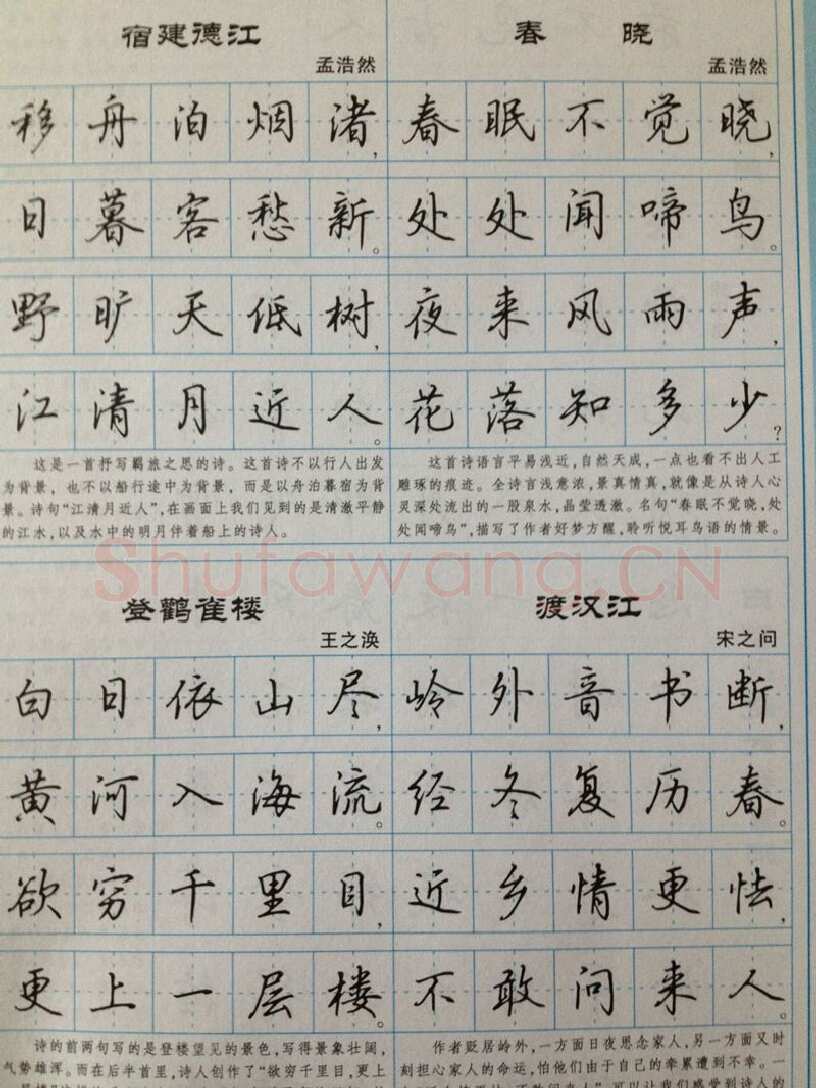 宿建德江
孟浩然
移舟泊烟渚,
日暮客愁新。
野旷天低树,
江清月近人。
这是一首抒写羁旅之思的诗。这首诗不以行人出发
为背景，也不以船行途中为背景，而是以舟泊暮宿为背
景。诗句“江清月近人”,在画面上我们见到的是清澈平静
的江水,以及水中的明月伴着船上的诗人。
春晓
孟浩然
春眠不觉晓,
处处闻啼鸟。
夜来风雨声,
花落知多少?
这首诗语言平易浅近,自然天成,一点也看不出人工
雕琢的痕迹。全诗言浅意浓,景真情真,就像是从诗人心
灵深处流出的一股泉水,晶莹透澈。名句“春眠不觉晓,处
处闻啼鸟”,描写了作者好梦方醒,聆听悦耳鸟语的情景。
Shufawang.CN
登鹳雀楼
王之涣
白日依山尽,
黄河入海流。
欲穷千里目,
更上一层楼。
诗的前两句写的是登楼望见的景色,写得景象壮阔,
气势雄浑。而在后半首里,诗人创作了“欲穷千里目,更上
渡汉江
宋之问
岭外音书断,
经冬复历春。
近乡情更怯,
不敢问来人。
作者贬居岭外,一方面日夜思念家人,另一方面又时
刻担心家人的命运,怕他们由于自己的牵累遭到不幸。一